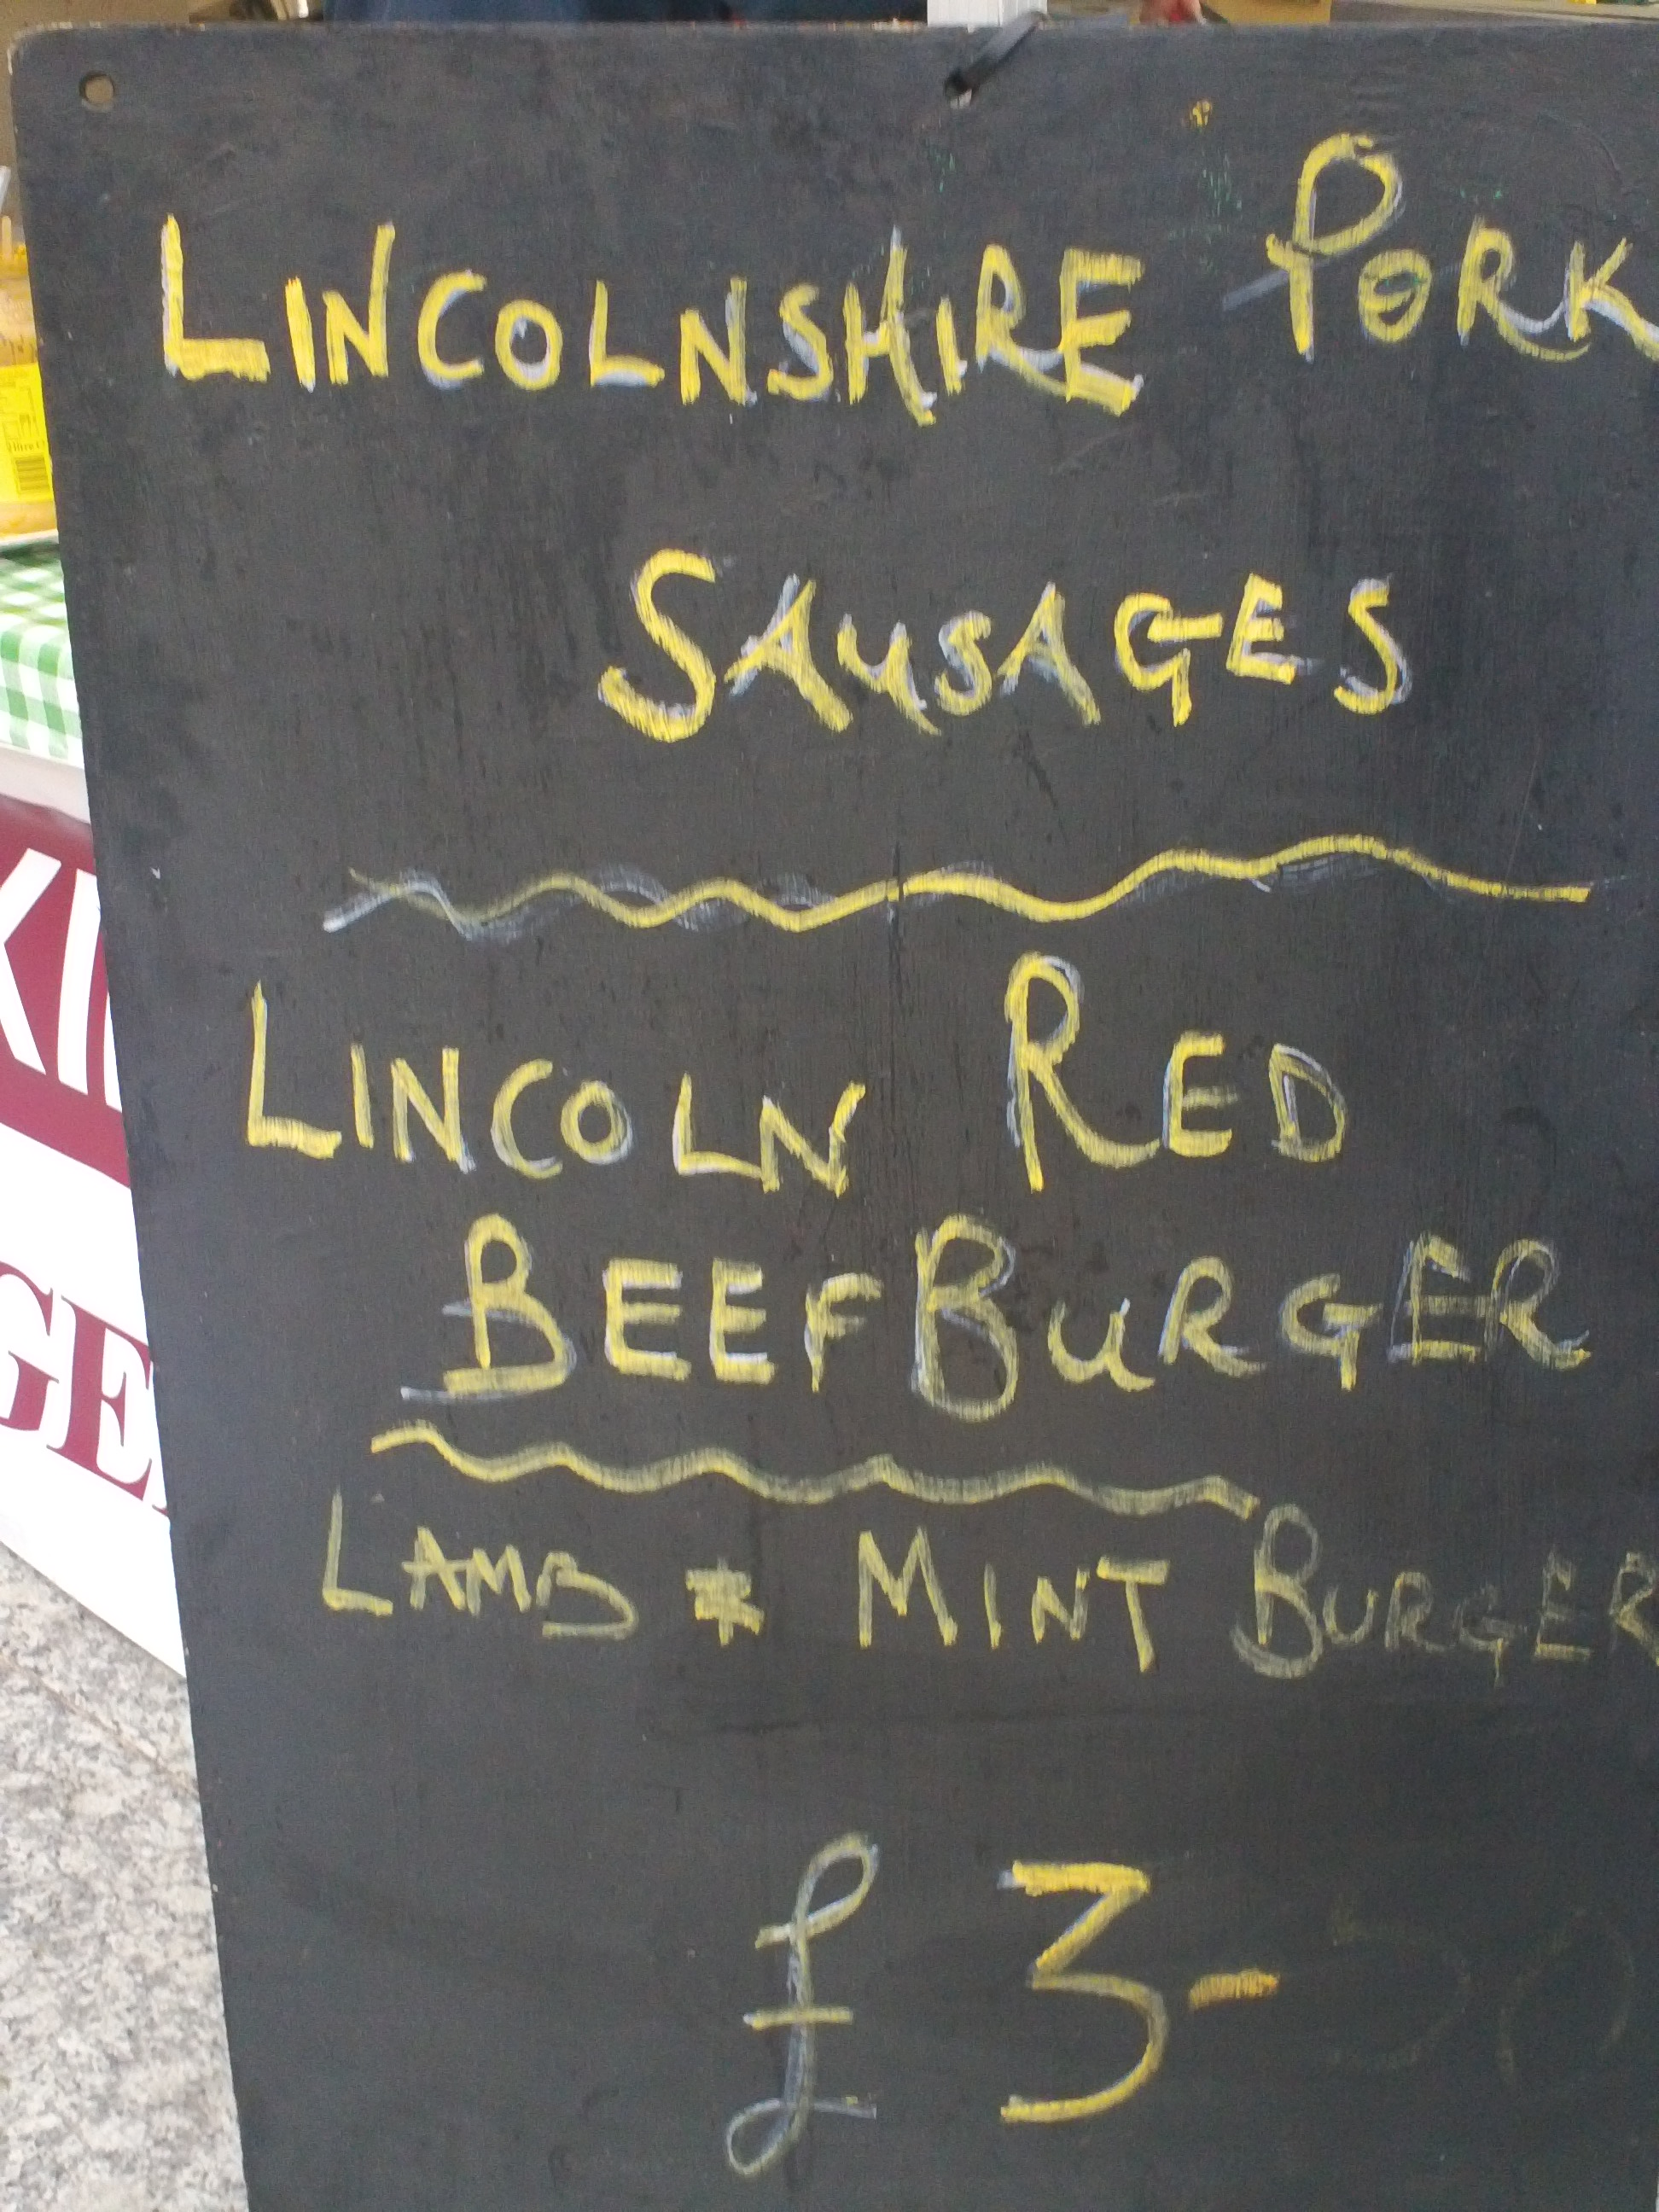 LINCOLNSHIRE PORK
SAUSAGES
LINCOLN RED
BEEFBURGER
LAMB & MINT BURGER
£3-50